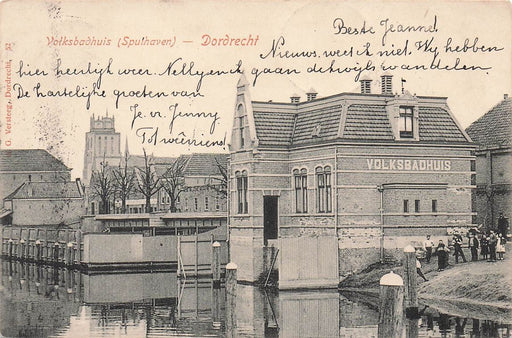 Volksbadhuis (Spuihaven) — Dordrecht
Beste Jeanne!
Nieuws weet ik niet. Wij hebben
hier heerlijk weer. Nelly en ik gaan dikwijls wandelen.
De hartelijke groeten van
Je vr. Jenny
Tot wêrziens!
G. Versteeg, Dordrecht,
VOLKSBADHUIS